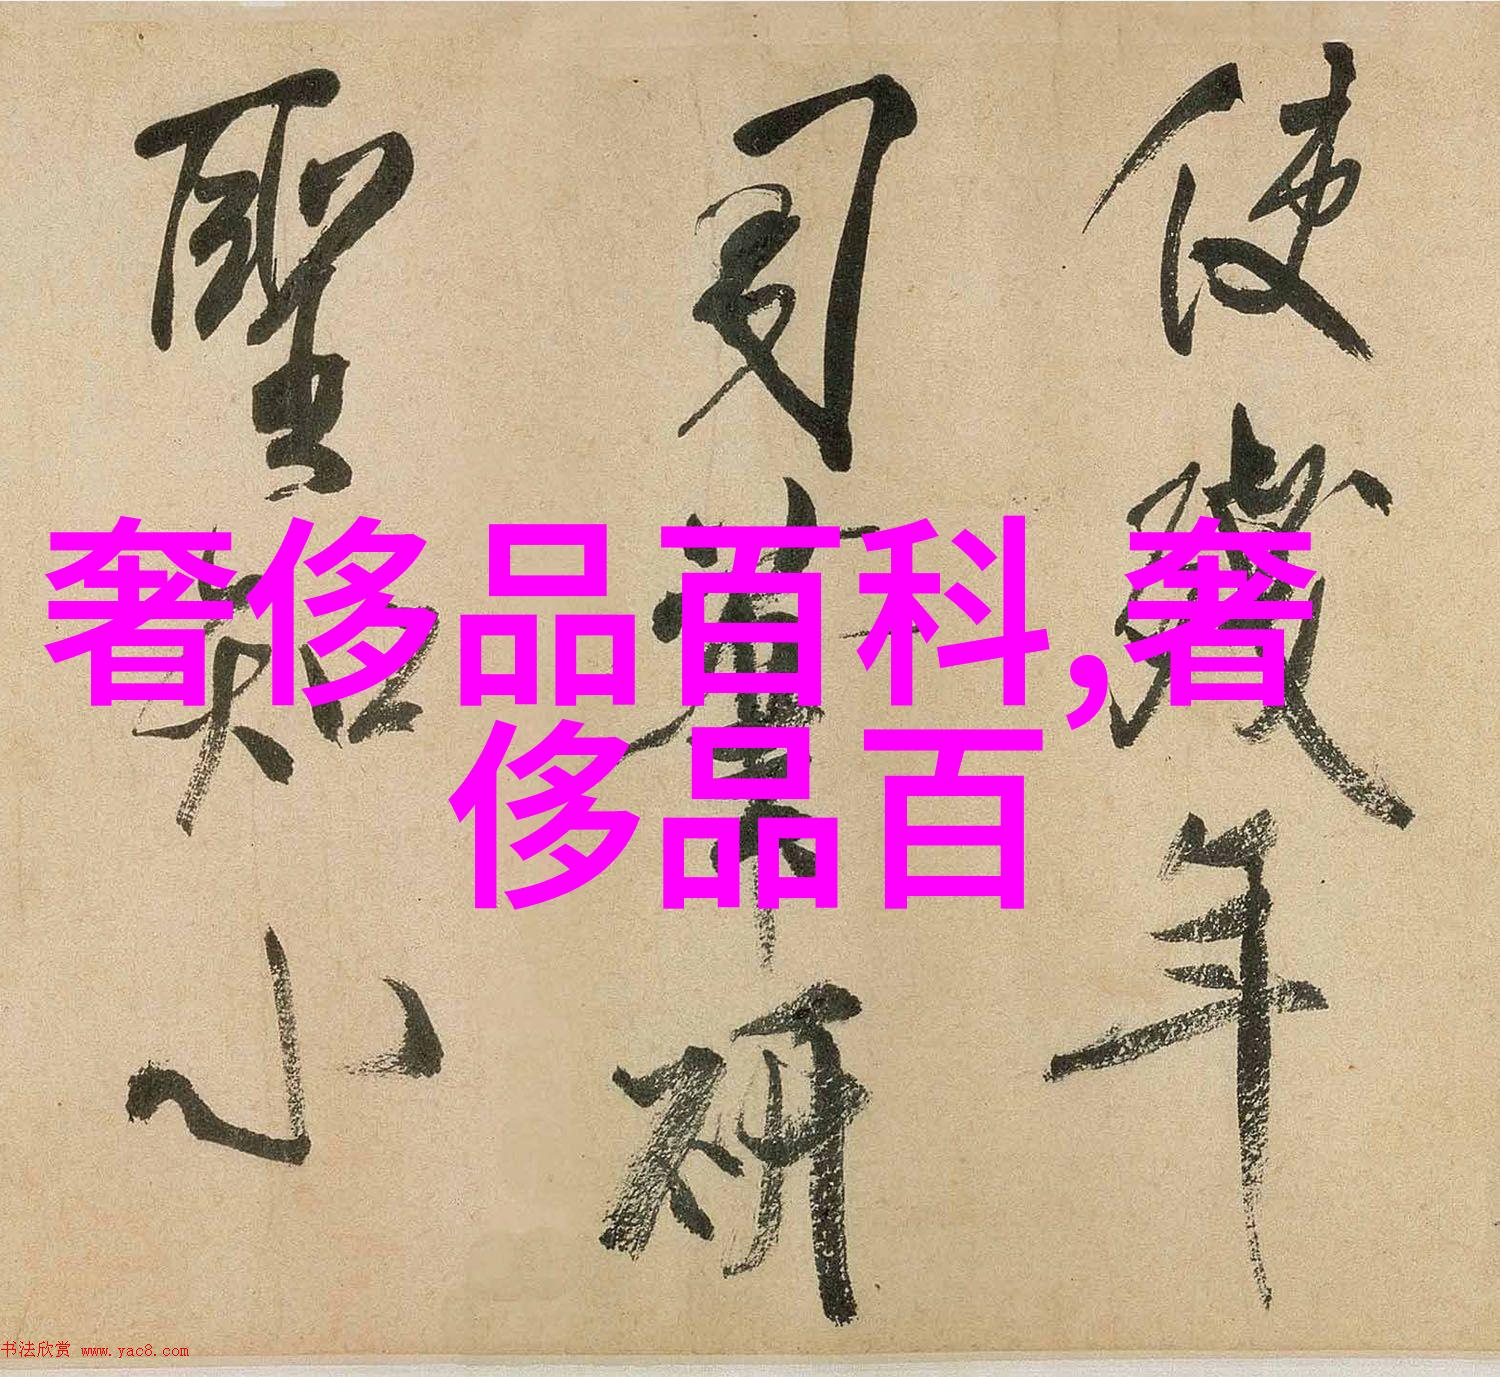 使殘年
司筆研
聖知小
奢侈品百科,奢
侈品百
书法欣赏 www.yac8.com